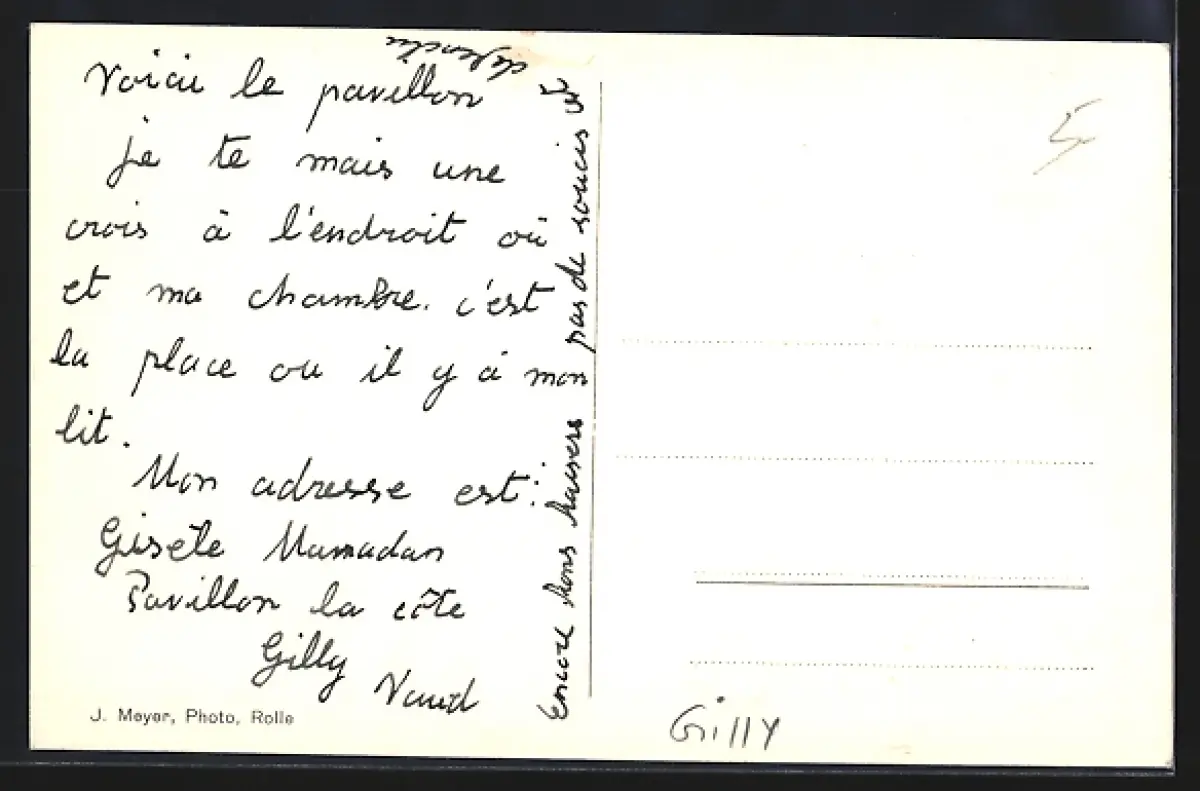 Voici le pavillon
je te mais une
crois à l'endroit où
et ma chambre. c'est
la place ou il y à mon
lit.
Mon adresse est:
Gisèle Mamadan
Pavillon la côte
Gilly
Vaud
Encore bons baisers pas de soucis et
J. Meyer, Photo, Rolle
5
Gilly